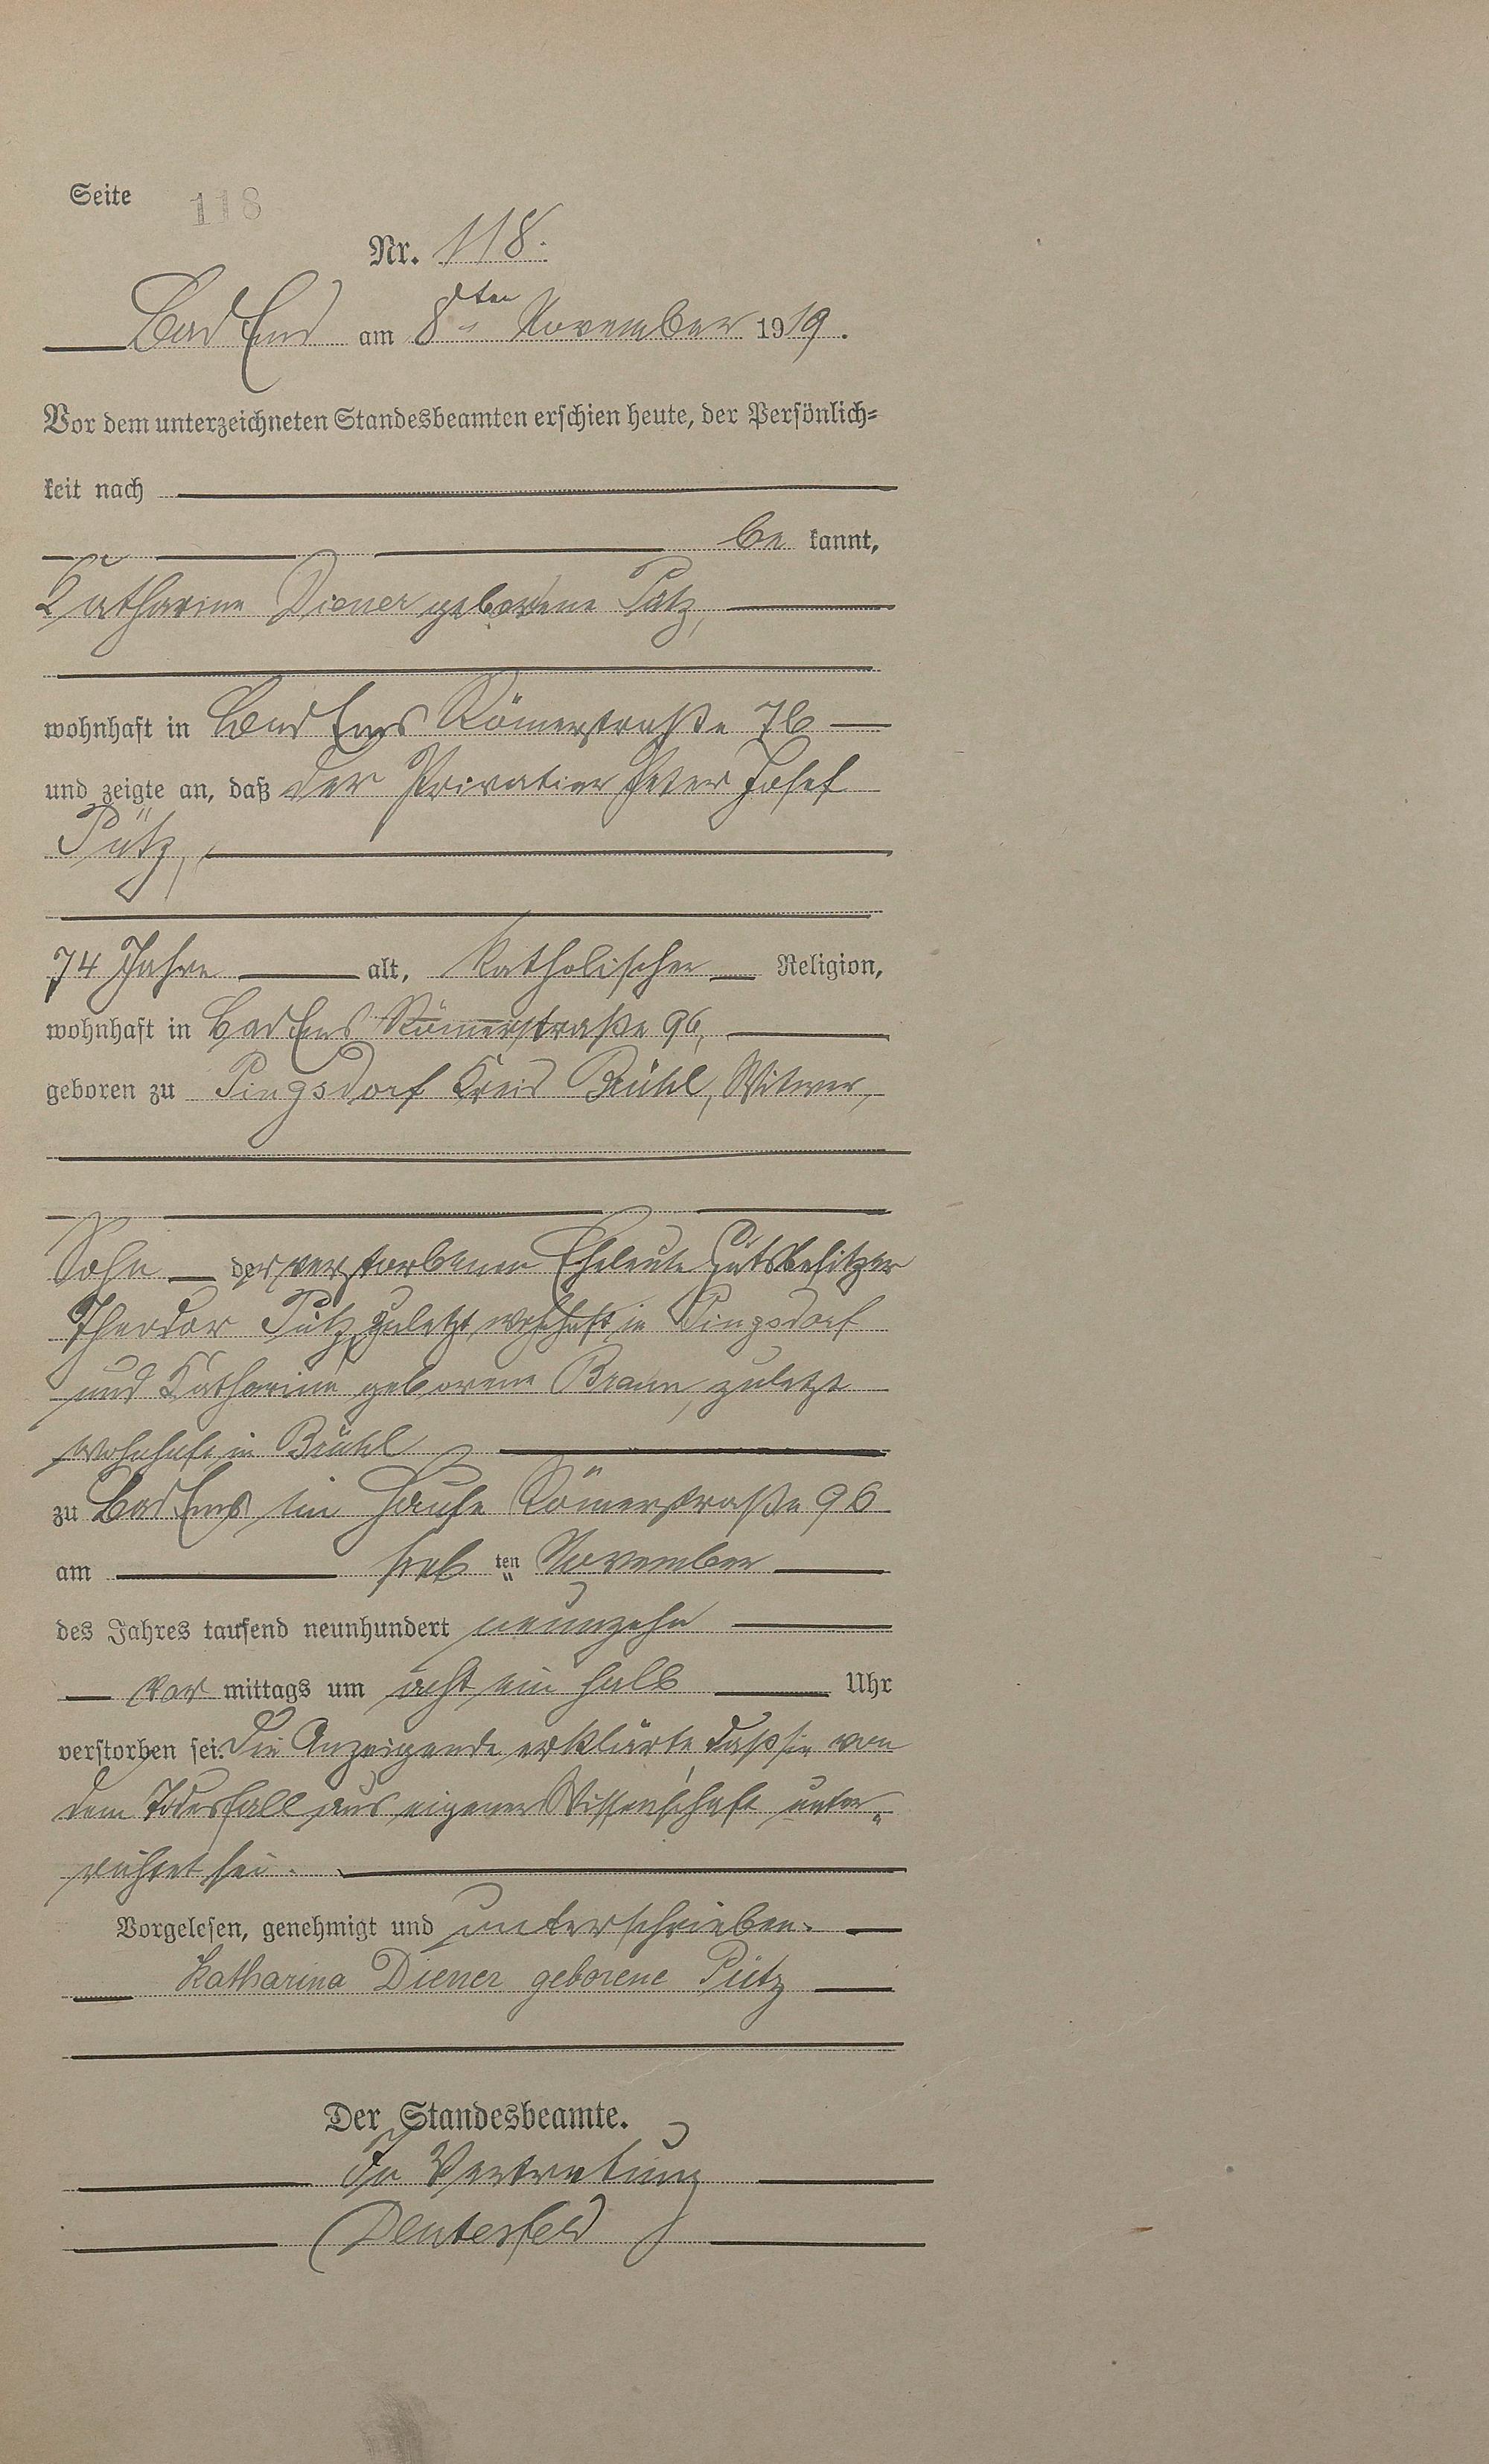 Seite 118
Nr. 118.
Bad Ems am 8ten November 1919.
Vor dem unterzeichneten Standesbeamten erschien heute, der Persönlich=
keit nach
be kannt,
Katharine Diener geborene Pütz,
wohnhaft in Bad Ems Römerstraße 76
und zeigte an, daß der Privatier Peter Josef
Pütz,
74 Jahre alt, katholischer Religion,
wohnhaft in Bad Ems Römerstraße 96,
geboren zu Pingsdorf Kreis Brühl, Witwer,
Sohn der verstorbenen Eheleute Gutsbesitzer
Theodor Pütz, zuletzt wohnhaft in Pingsdorf
und Katharina geborene Braun, zuletzt
wohnhaft in Brühl
zu Bad Ems im Hause Römerstraße 96
am ten November
des Jahres tausend neunhundert neunzehn
vor mittags um acht ein halb Uhr
verstorben sei. Die Anzeigende erklärte, daß sie von
dem Todesfall aus eigener Wissenschaft unter„
richtet sei.
Vorgelesen, genehmigt und unterschrieben.
Katharina Diener geborene Pütz
Der Standesbeamte.
In Vertretung